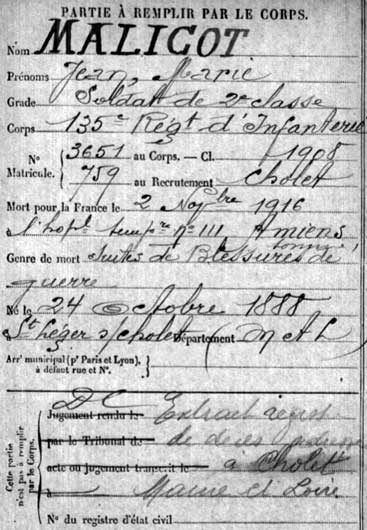 PARTIE À REMPLIR PAR LE CORPS.
Nom MALICOT
Prénoms Jean, Marie
Grade Soldat de 2e classe
Corps 135e Régt d'Infanterie
N° Matricule. { 3651 au Corps. — Cl. 1908
759 au Recrutement Cholet
Mort pour la France le 2 Nov​bre 1916
à l'hopl tempre n° 111 Amiens
Genre de mort Suites de Blessures de
guerre
Né le 24 Octobre 1888
à St Léger s/cholet Département (M & L)
Arrt municipal (pr Paris et Lyon), à défaut rue et N°. }
Cette partie n'est pas à remplir par le Corps.
DC
Jugement rendu le Extrait
par le Tribunal de de décès
acte ou jugement transcrit le à Cholet
à Maine et Loire
N° du registre d'état civil